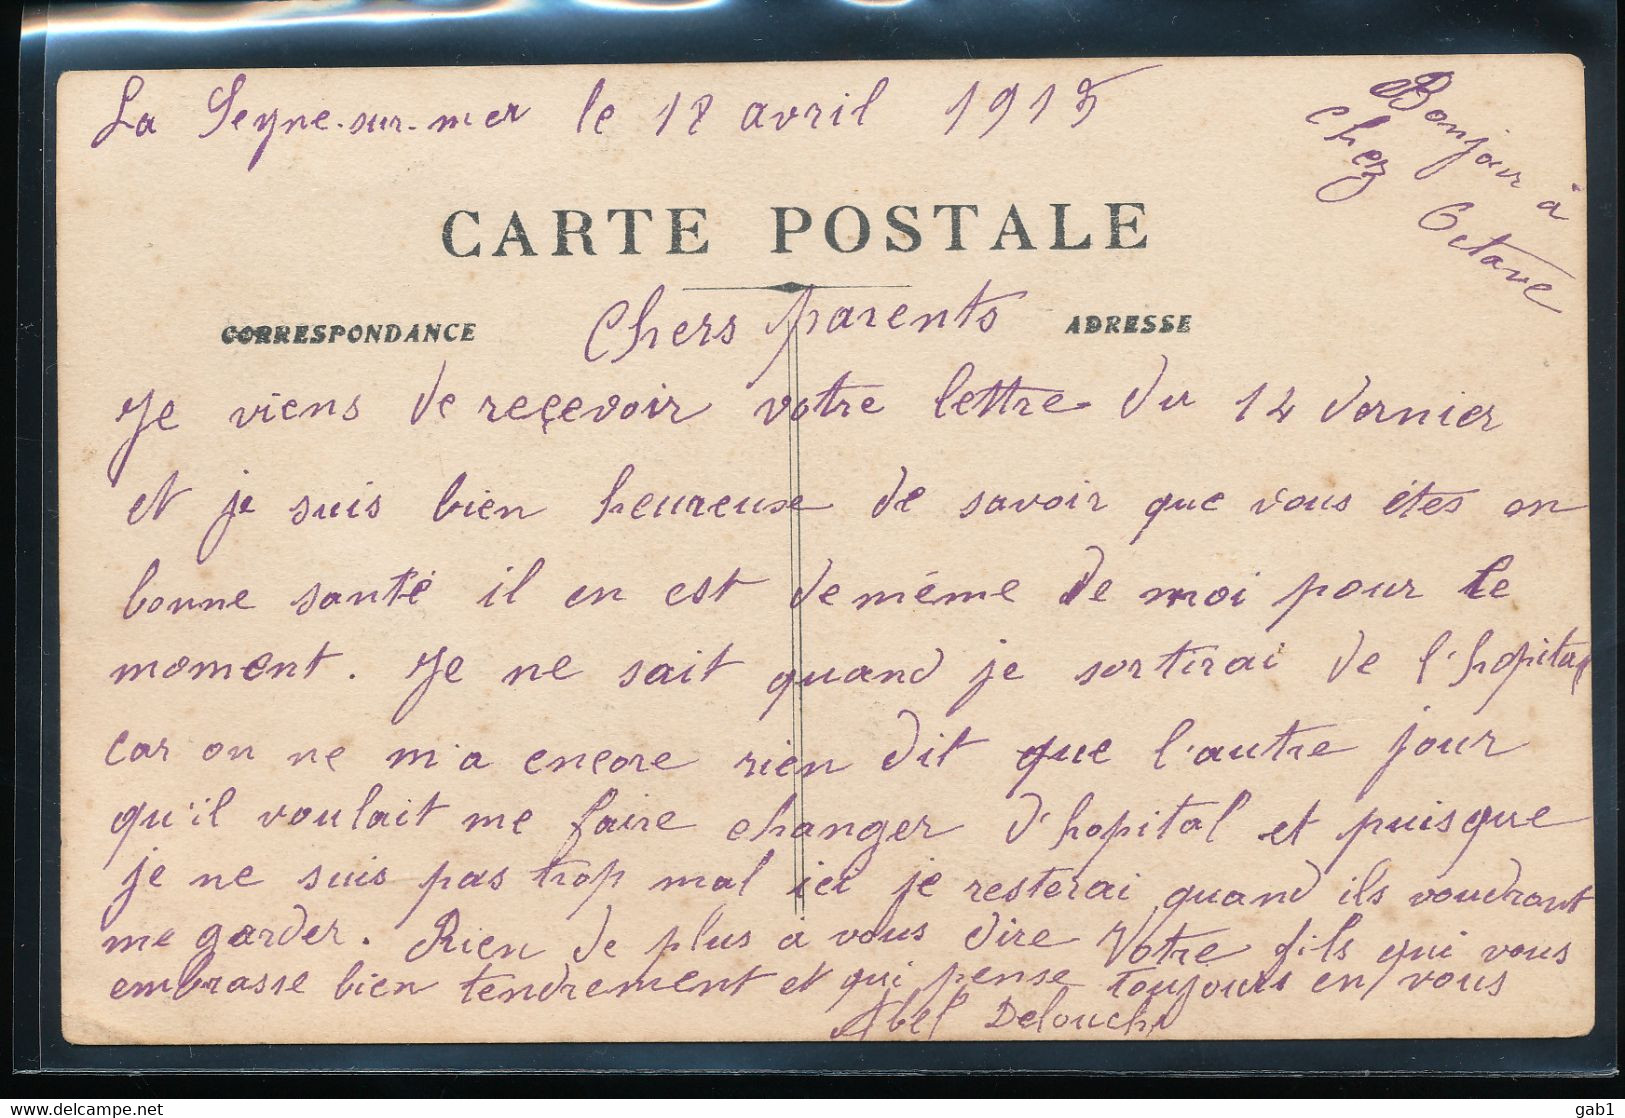 La Seyne-sur-mer le 18 avril 1915
Bonjour à
chez Octave
CARTE POSTALE
CORRESPONDANCE
ADRESSE
Chers parents
Je viens de reçevoir votre lettre du 14 dernier
et je suis bien heureuse de savoir que vous êtes en
bonne santé il en est de même de moi pour le
moment. Je ne sait quand je sortirai de l'hopital
car on ne m'a encore rien dit que l'autre jour
qu'il voulait me faire changer d'hopital et puisque
je ne suis pas trop mal ici je resterai quand ils voudront
me garder. Rien de plus à vous dire Votre fils qui vous
embrasse bien tendrement et qui pense toujours en vous
Abel Delouche
www.delcampe.net
gab1